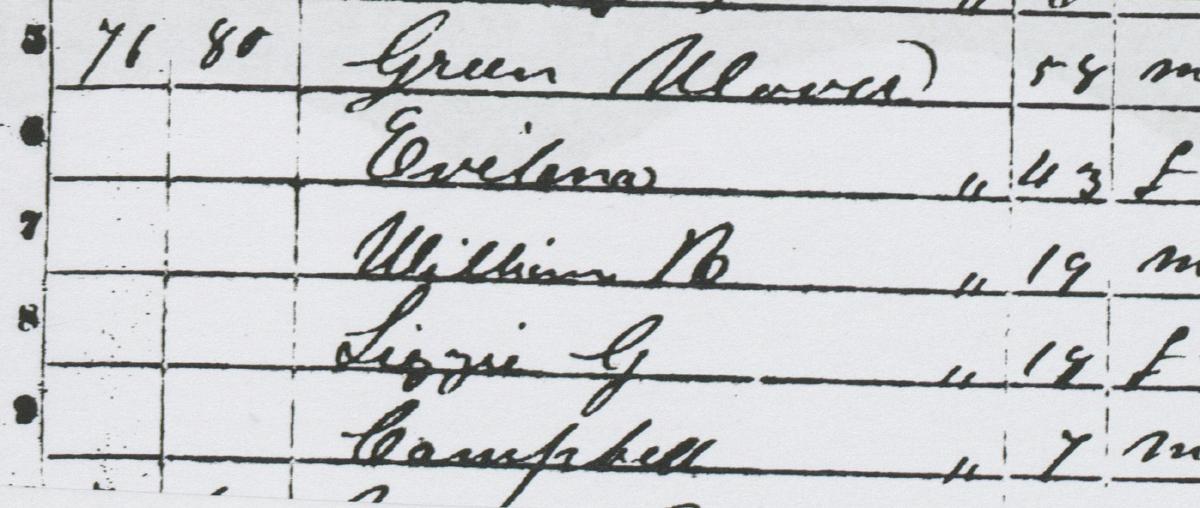 5 71 80 Green 58 m
6 Evilena " 43 f
7 William B " 19 m
8 Lizzie G " 19 f
9 Campbell " 7 m